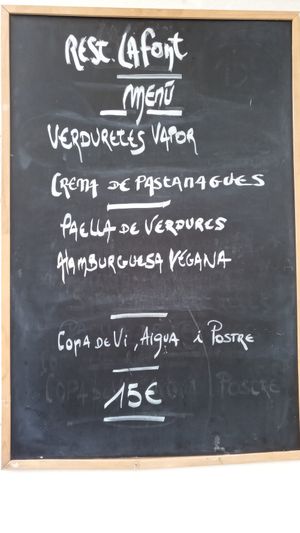 REST. LAFONT
MENÚ
VERDURETES VAPOR
CREMA DE PASTANAGUES
PAELLA DE VERDURES
HAMBURGUESA VEGANA
COPA DE VI, AIGUA i POSTRE
15€